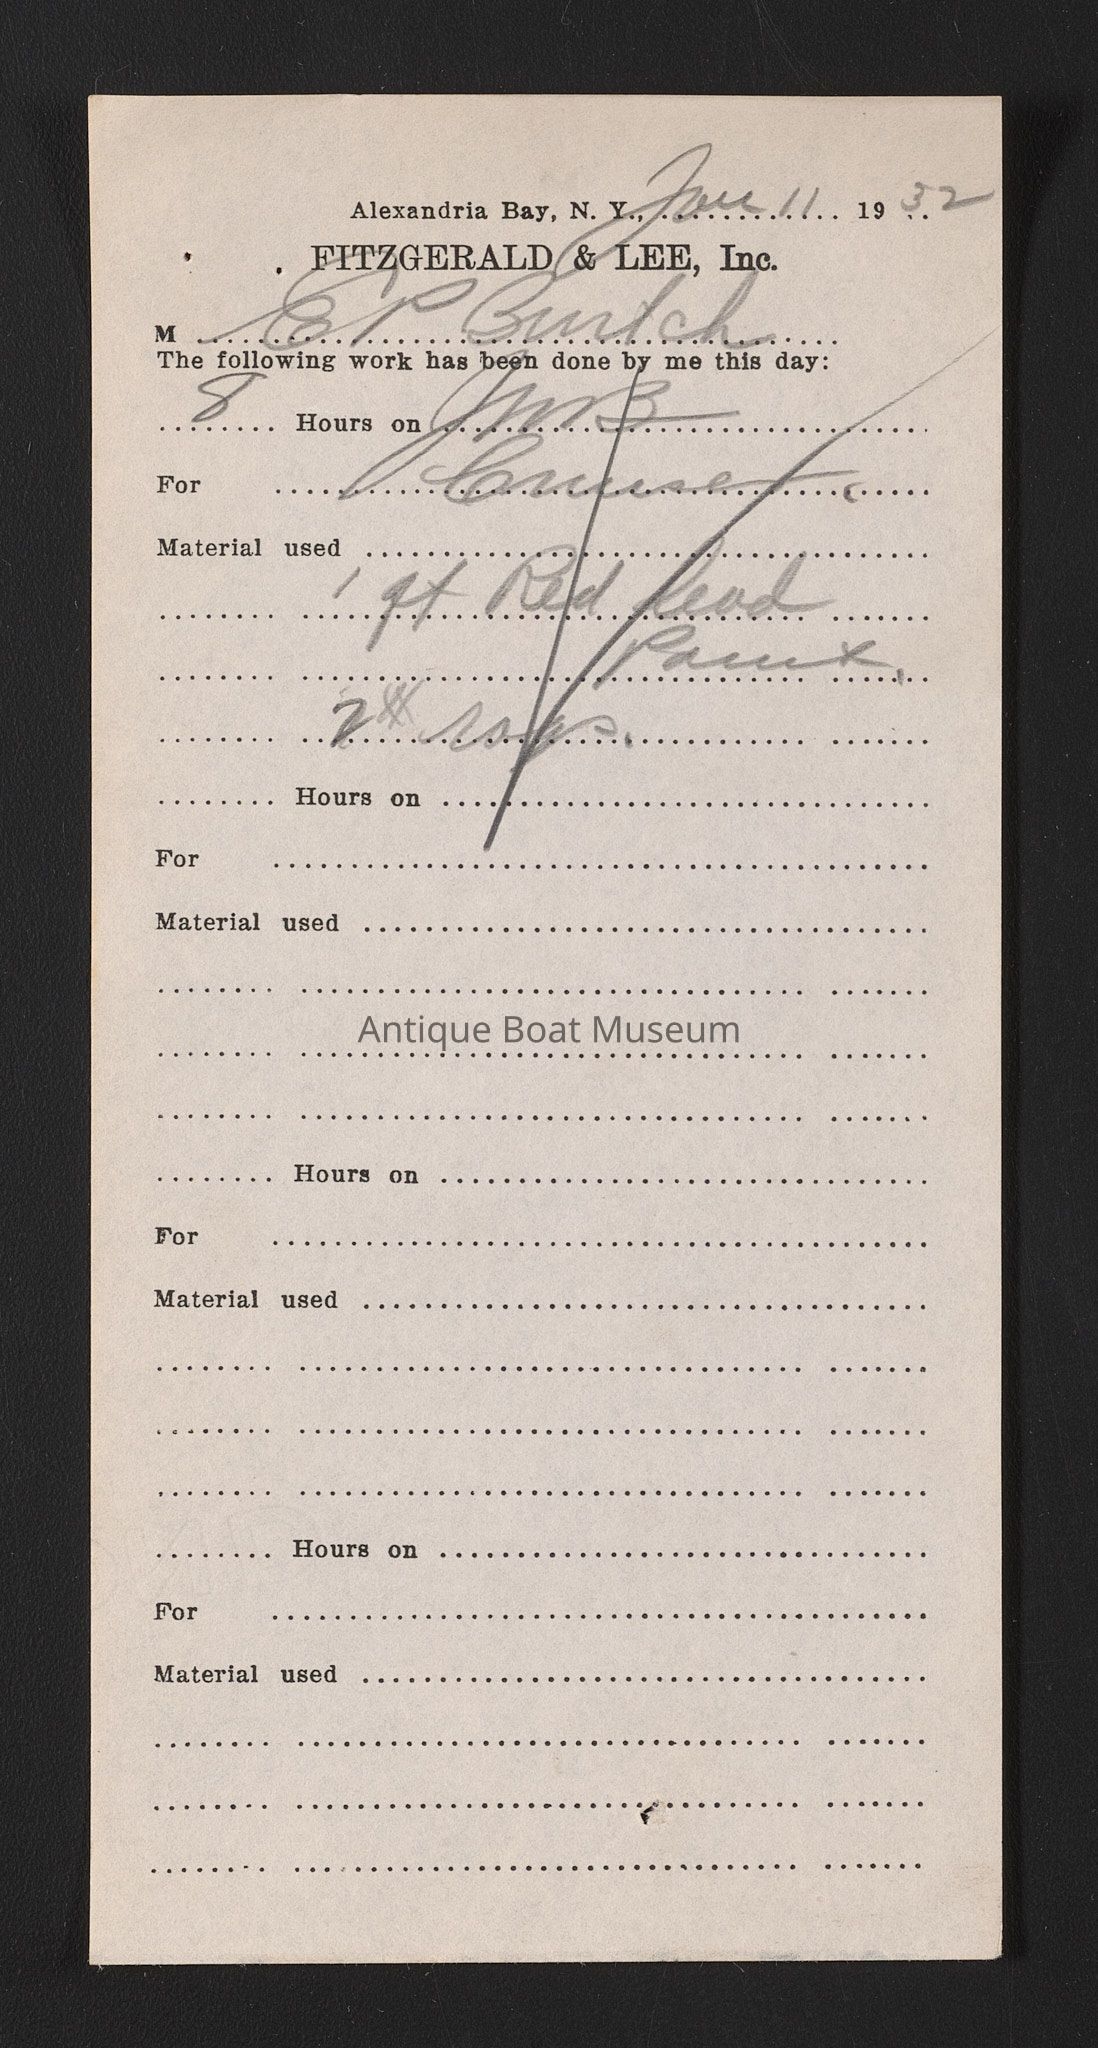 Alexandria Bay, N. Y., Jan 11 1932
FITZGERALD & LEE, Inc.
M E P Burtch
The following work has been done by me this day:
8 Hours on MB
For Cruiser.
Material used
1 qt Red Lead
Paint.
2# rags.
Hours on
For
Material used
Antique Boat Museum
Hours on
For
Material used
Hours on
For
Material used